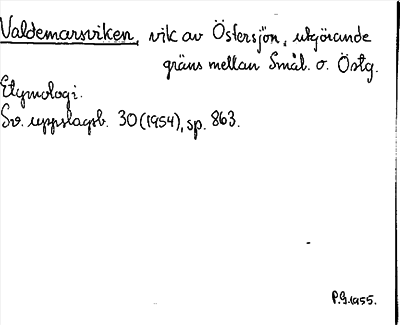 Valdemarsviken, vik av Östersjön, utgörande
gräns mellan Smål. o. Östg.
Etymologi.
Sv. uppslagsb. 30 (1954), sp. 863.
P.G. 1955.